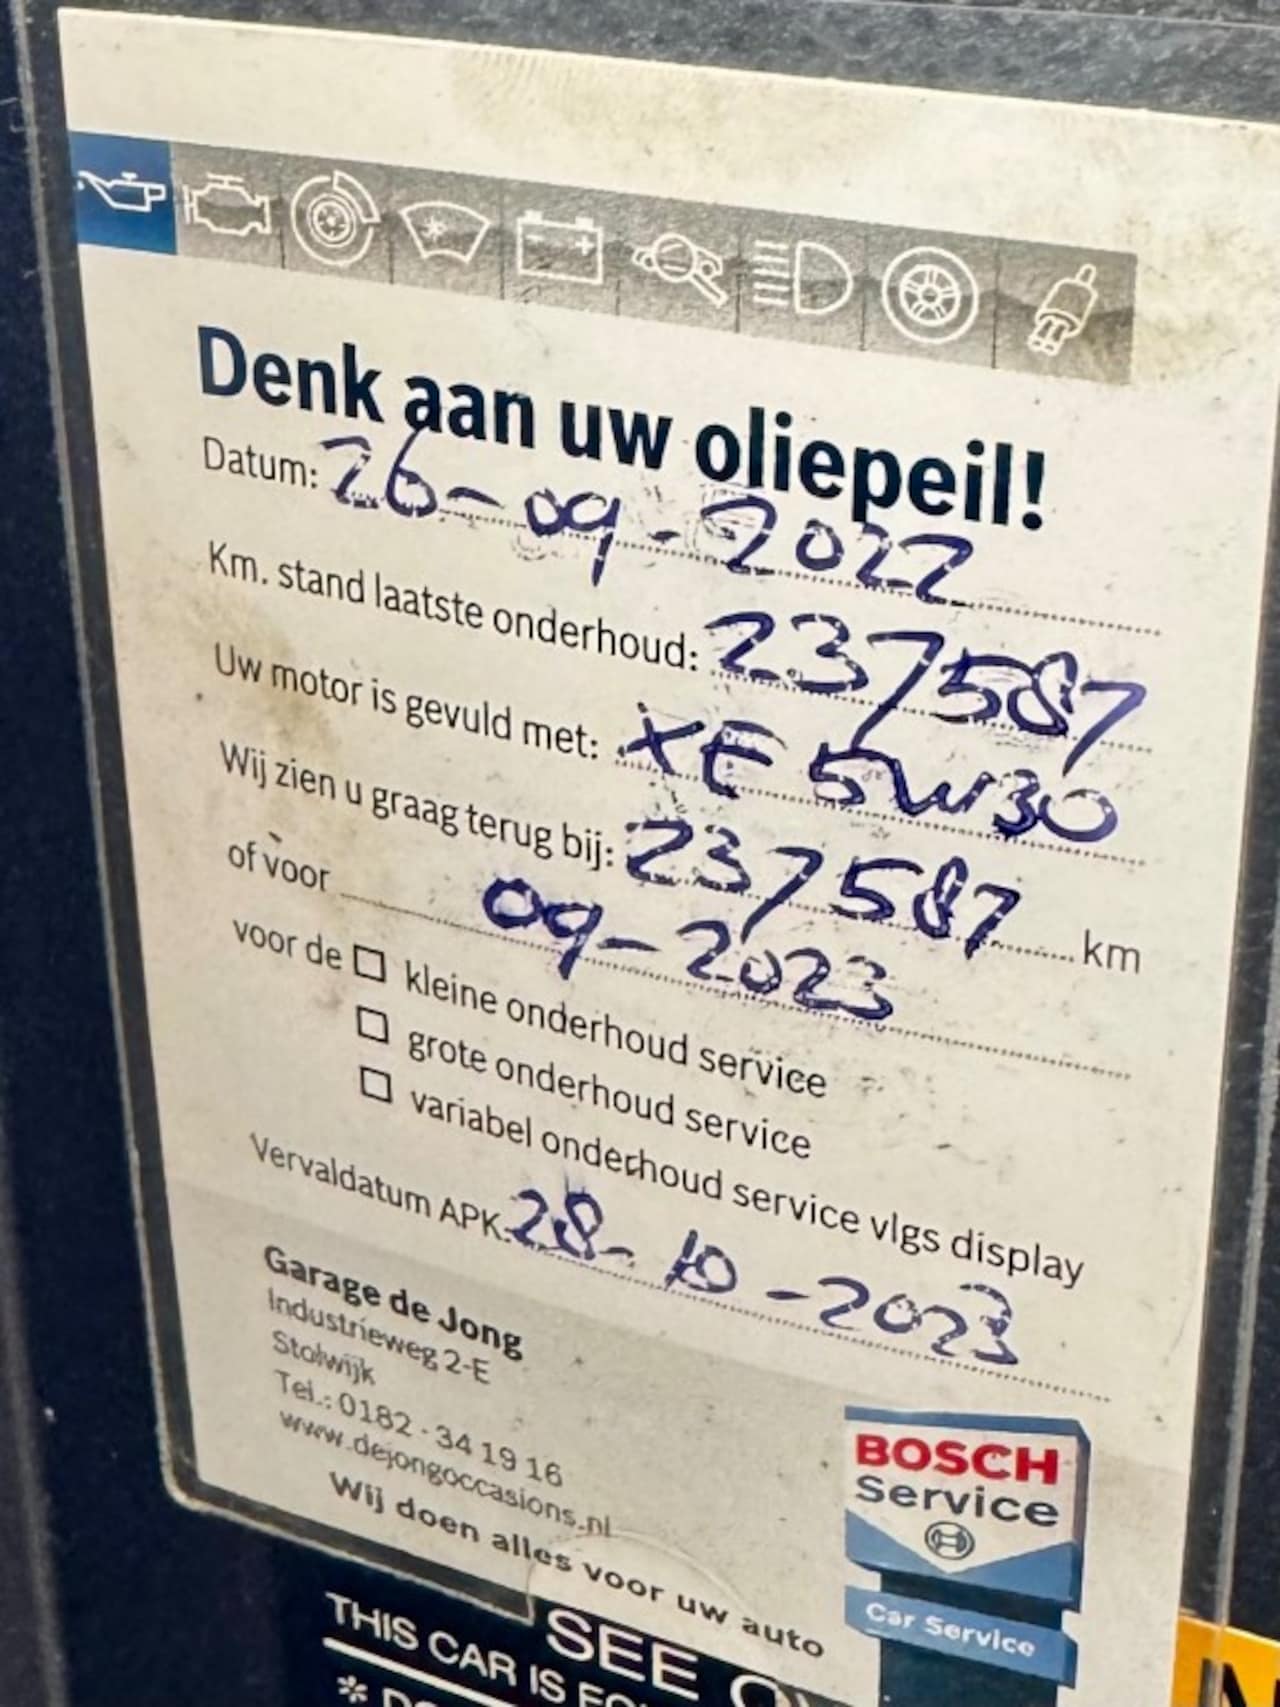 Denk aan uw oliepeil!
Datum: 26-09-2022
Km. stand laatste onderhoud: 237587
Uw motor is gevuld met: XE 5W30
Wij zien u graag terug bij: 237587 km
of voor 09-2023
voor de □ kleine onderhoud service
□ grote onderhoud service
□ variabel onderhoud service vlgs display
Vervaldatum APK: 28-10-2023
Garage de Jong
Industrieweg 2-E
Stolwijk
Tel.: 0182 - 34 19 16
www.dejongoccasions.nl
Wij doen alles voor uw auto
BOSCH
Service
Car Service
SEE
THIS CAR IS